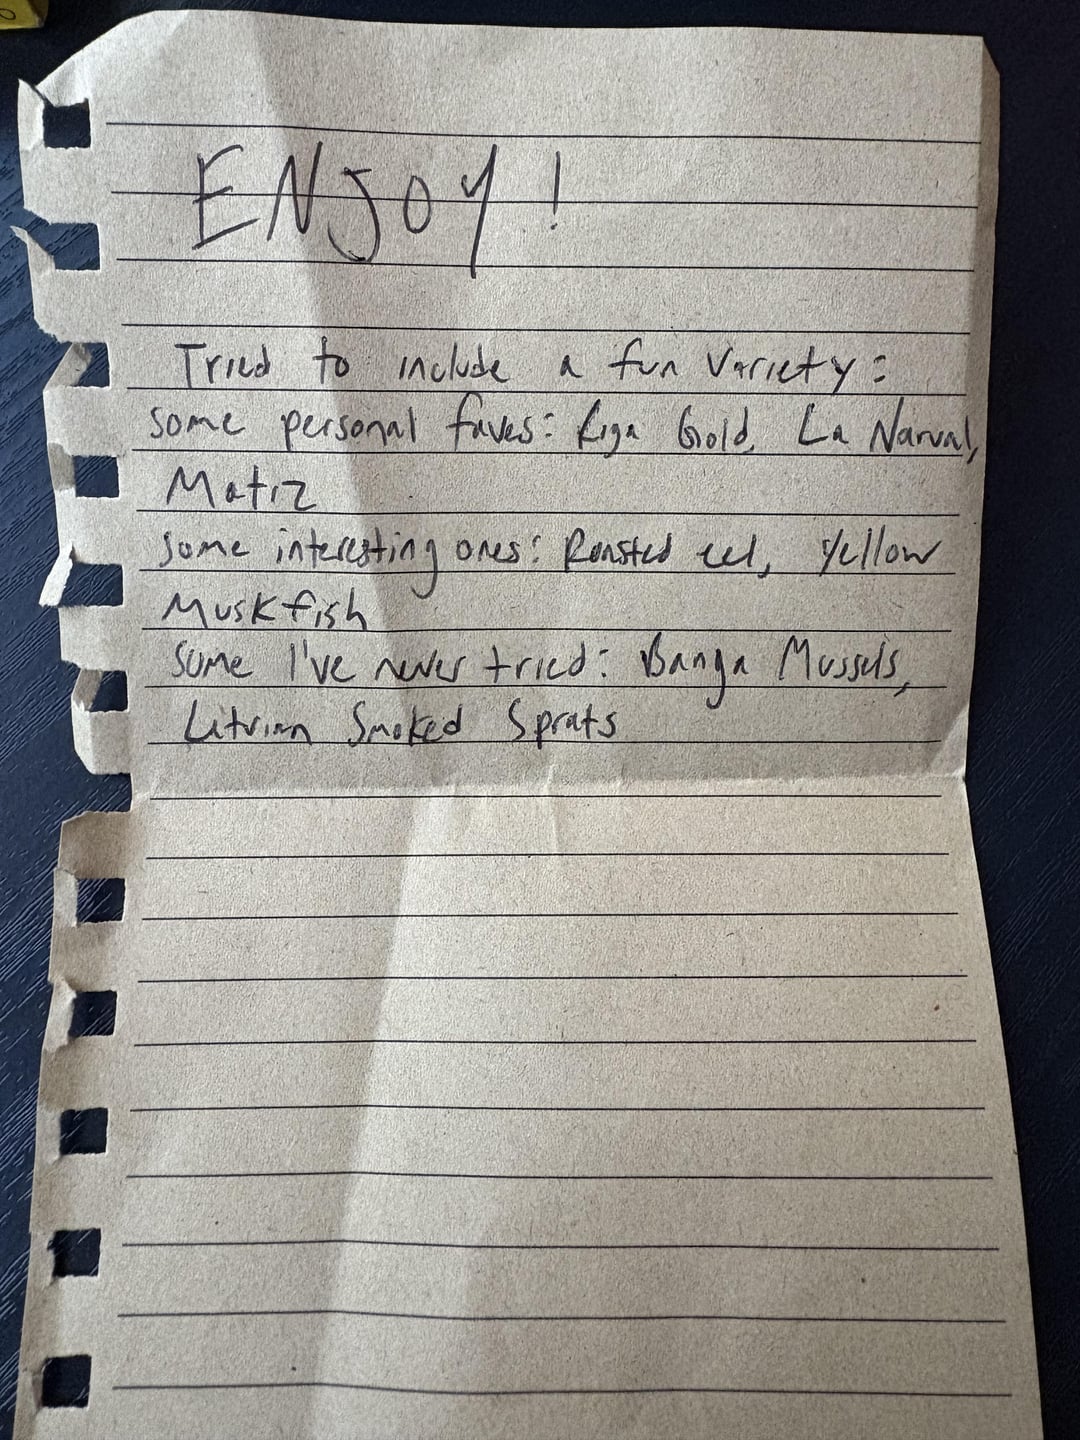 ENJOY!
Tried to include a fun variety:
some personal faves: Riga Gold, La Narval,
Matiz
some interesting ones: Roasted eel, Yellow
Muskfish
some I've never tried: Banga Mussels,
Latvian Smoked Sprats